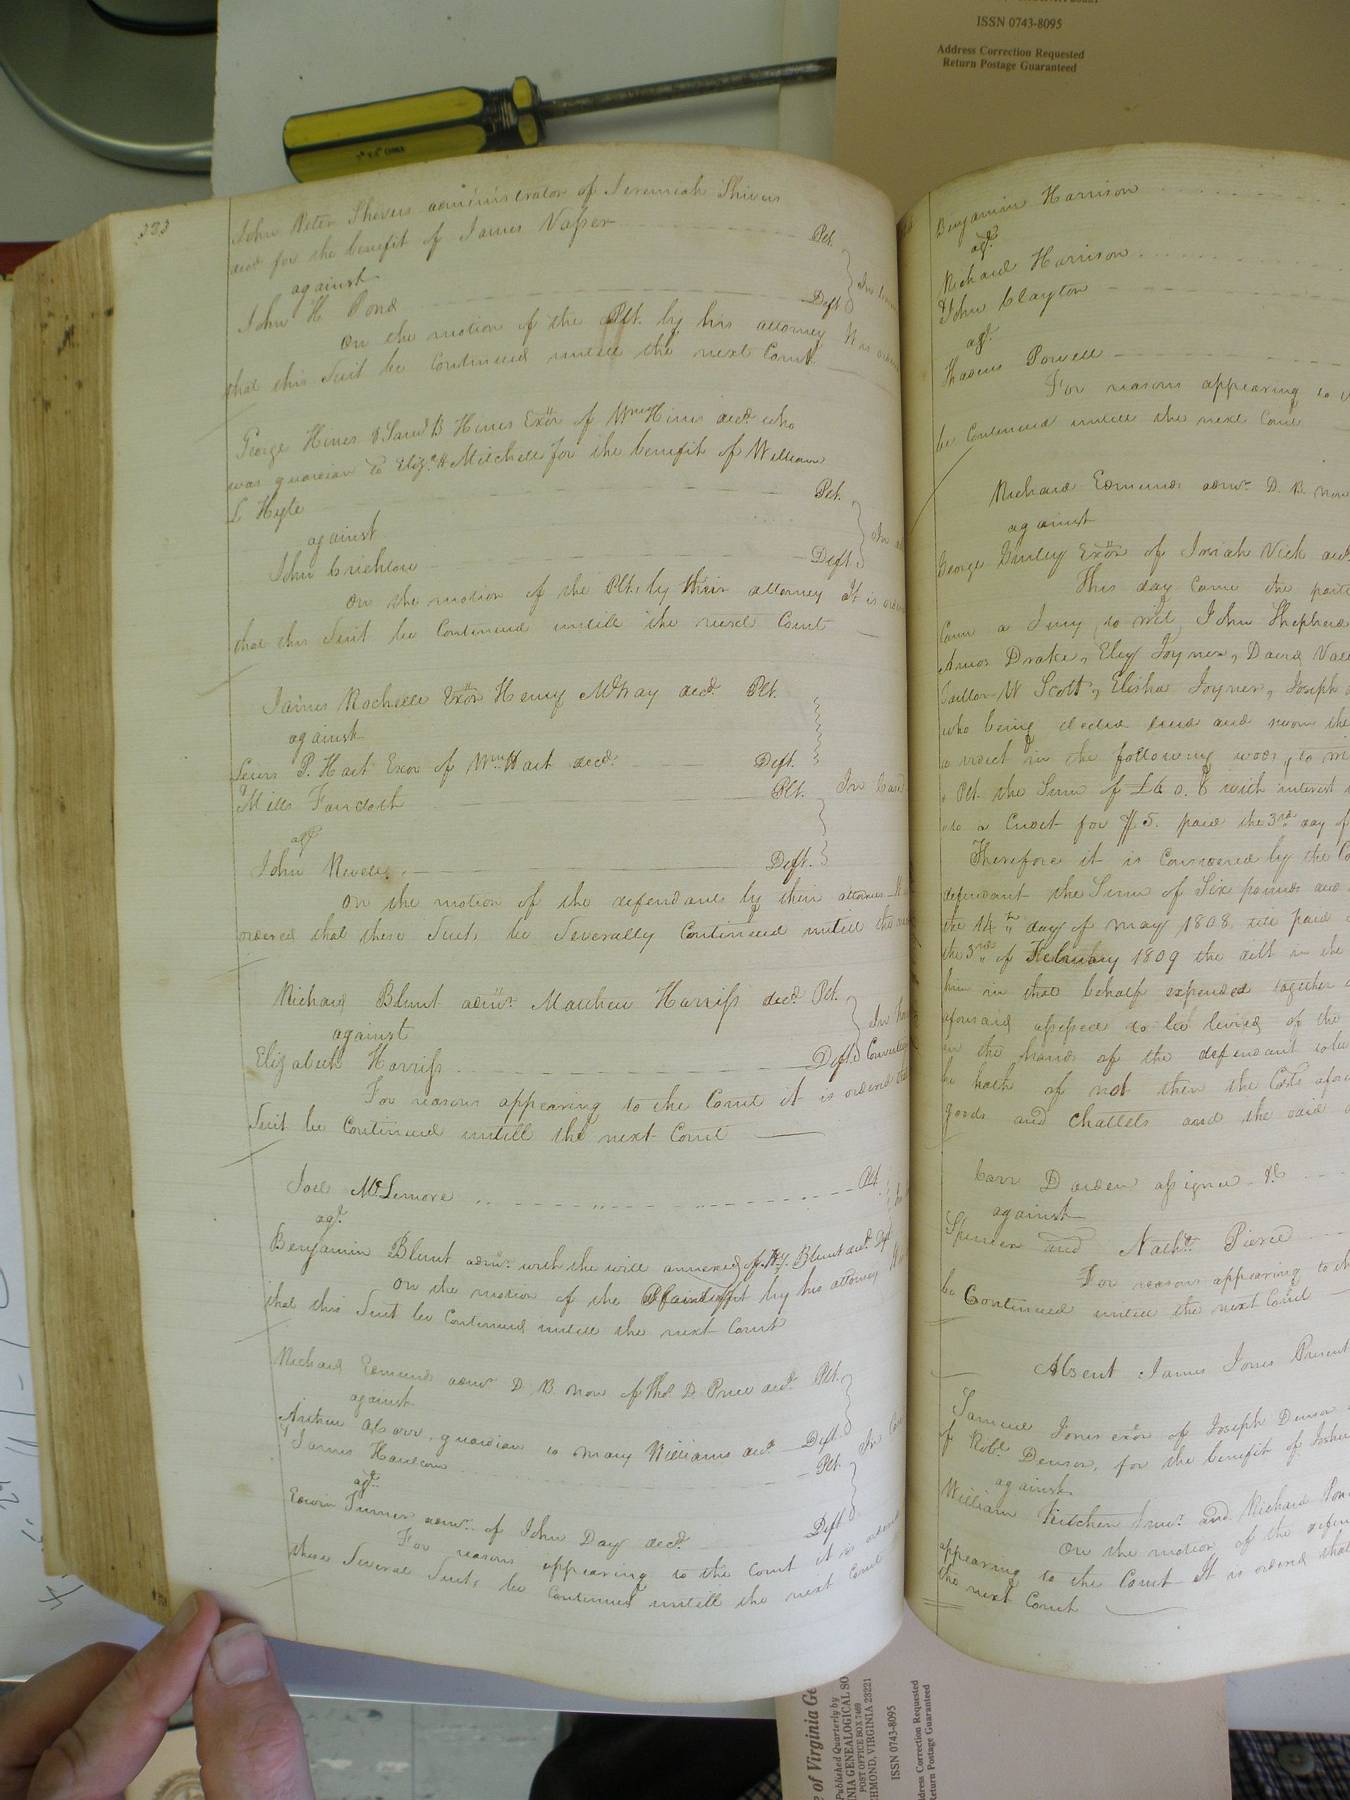 ISSN 0743-8095
Address Correction Requested
Return Postage Guaranteed
John Peter Shivers administrator of Jeremiah Shivers
decd for the benefit of James Vasser Plt.
against
John H Pond Deft
On the motion of the Plt. by his attorney It is
that this Suit be Continued untill the next Court
George Hines & Saml B Hines Exor of Wm Hines decd who
was guardian to Eliz. H Mitchell for the benefit of William
L Hyle Plt.
against
John Crichlow Deft.
On the motion of the Plts by their attorney It is
that this Suit be Continued untill the next Court
James Rochelle Exor Henry McKay decd. Plt.
against
P. Hart Exor of Wm Hart decd. Deft.
Mills Plt.
agt
John Deft.
On the motion of the defendants by their attornies It
ordered that these Suits be Severally Continued untill the
Richard Blunt admr. Matthew Harriss decd Plt.
against
Elizabeth Harriss Deft
For reasons appearing to the Court it is ordered
Suit be Continued untill the next Court
Joel McLemore Plt
agt.
Benjamin Blunt admr. with the will annexed of Wm. Blunt decd Dft
On the motion of the by his attorney
that this Suit be Continued untill the next Court
Richard Edmunds admr D. B. non of Thos D. Price decd. Plt.
against
guardian to Mary Williams decd Deft
& James Plt.
agt.
Edwin Turner admr. of John Day decd. Deft
For reasons appearing to the Court it is
these Several Suits be Continued untill the next Court
Benjamin Harrison
agt.
Richard Harrison
& John Clayton
agt.
Powell
For reasons appearing to
be Continued untill the next Court
Richard Edmunds admr. D. B. non
against
George Gurley Exor of Josiah Vick decd
This day Came the parties
Came a Jury to wit, John Shepherd
Amos Drake, Eley Joyner, David
W Scott, Elisha Joyner, Joseph
who being elected tried and sworn the
a verdict in the following words, to wit
Plt. the Sum of £6.0.8 with interest
to a Credit for $5. paid the 3rd day of
Therefore it is Considered by the
defendant the Sum of Six pounds and
the 14th day of May 1808 till paid
the 3rd of February 1809 the debt in the
him in that behalf expended together
aforesaid assessed to be levied of the
in the hands of the defendant
he hath if not then the Costs
goods and Chattels and the said
Carr Darden assignee &c
against
Spencer and Nathl Pierce
For reasons appearing to
be Continued untill the next Court
Absent James Jones Present
Samuel Jones exor of Joseph Denson
of Robt Denson, for the benefit of
against
William Kitchen Junr. and Richard
On the motion of the
appearing to the Court It is ordered that
the next Court
of Virginia
Published Quarterly by
GENEALOGICAL
POST OFFICE BOX 7469
VIRGINIA 23221
ISSN 0743-8095
Correction Requested
Return Postage Guaranteed